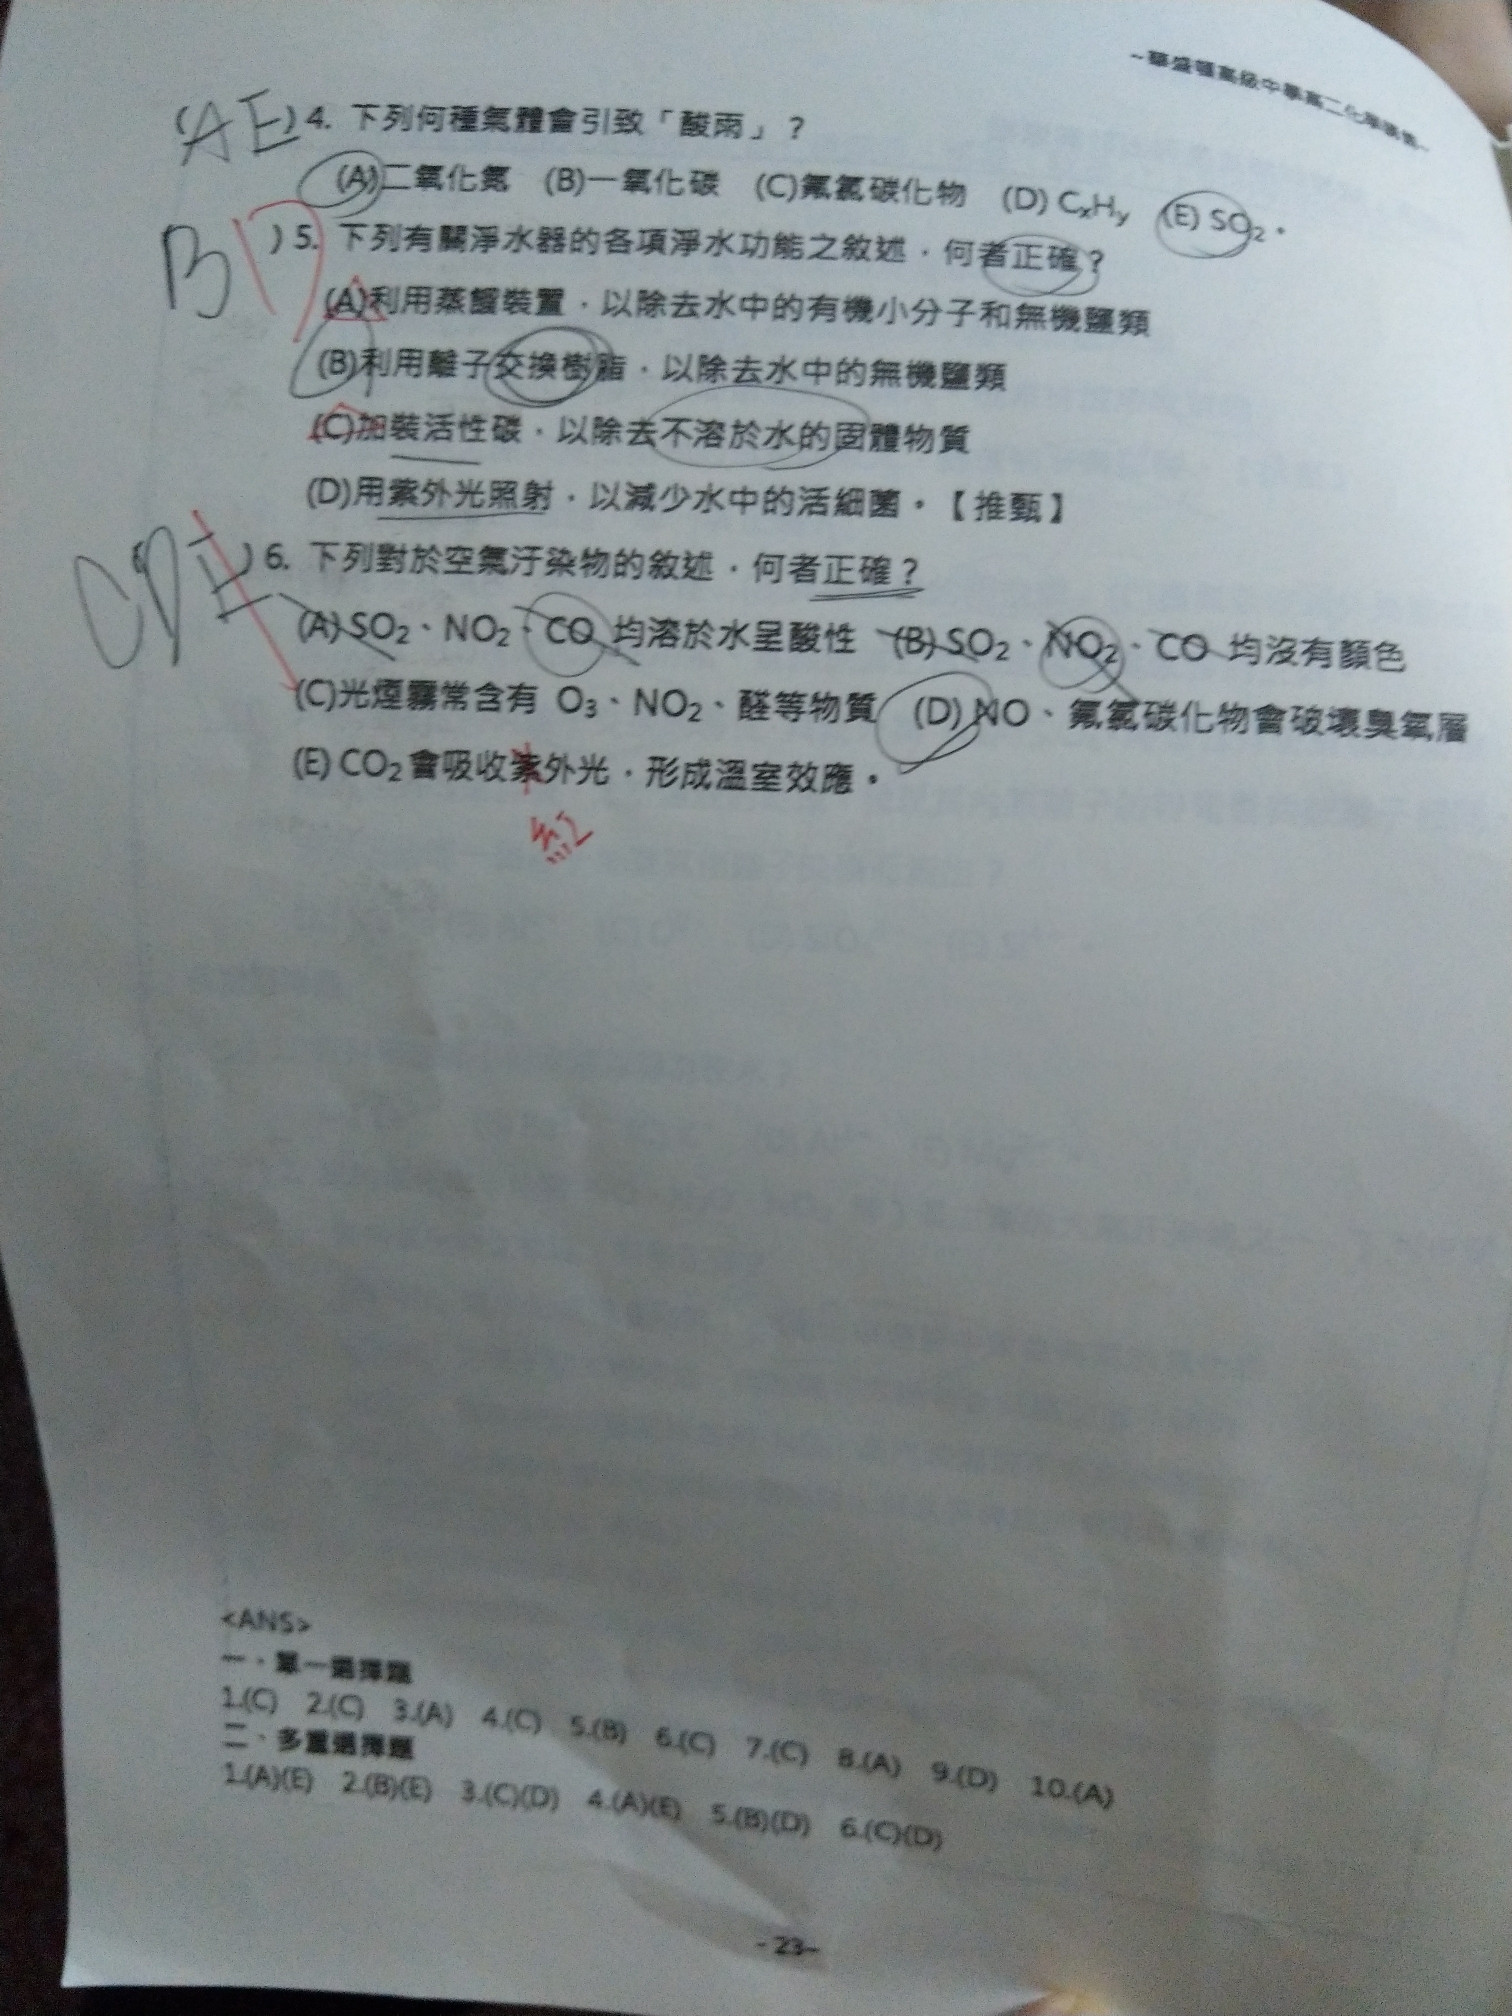 ~華盛頓高級中學高二化學講義~
(AE)4. 下列何種氣體會引致「酸雨」？
(A)二氧化氮 (B)一氧化碳 (C)氟氯碳化物 (D) CxHy (E) SO₂。
BD )5. 下列有關淨水器的各項淨水功能之敘述，何者正確？
(A)利用蒸餾裝置，以除去水中的有機小分子和無機鹽類
(B)利用離子交換樹脂，以除去水中的無機鹽類
(C)加裝活性碳，以除去不溶於水的固體物質
(D)用紫外光照射，以減少水中的活細菌。【推甄】
CDE )6. 下列對於空氣汙染物的敘述，何者正確？
(A) SO₂、NO₂、CO 均溶於水呈酸性 (B) SO₂、NO₂、CO 均沒有顏色
(C)光煙霧常含有 O₃、NO₂、醛等物質 (D) NO、氟氯碳化物會破壞臭氧層
(E) CO₂ 會吸收紫外光，形成溫室效應。
紅
<ANS>
一、單一選擇題
1.(C) 2.(C) 3.(A) 4.(C) 5.(B) 6.(C) 7.(C) 8.(A) 9.(D) 10.(A)
二、多重選擇題
1.(A)(E) 2.(B)(E) 3.(C)(D) 4.(A)(E) 5.(B)(D) 6.(C)(D)
- 23-